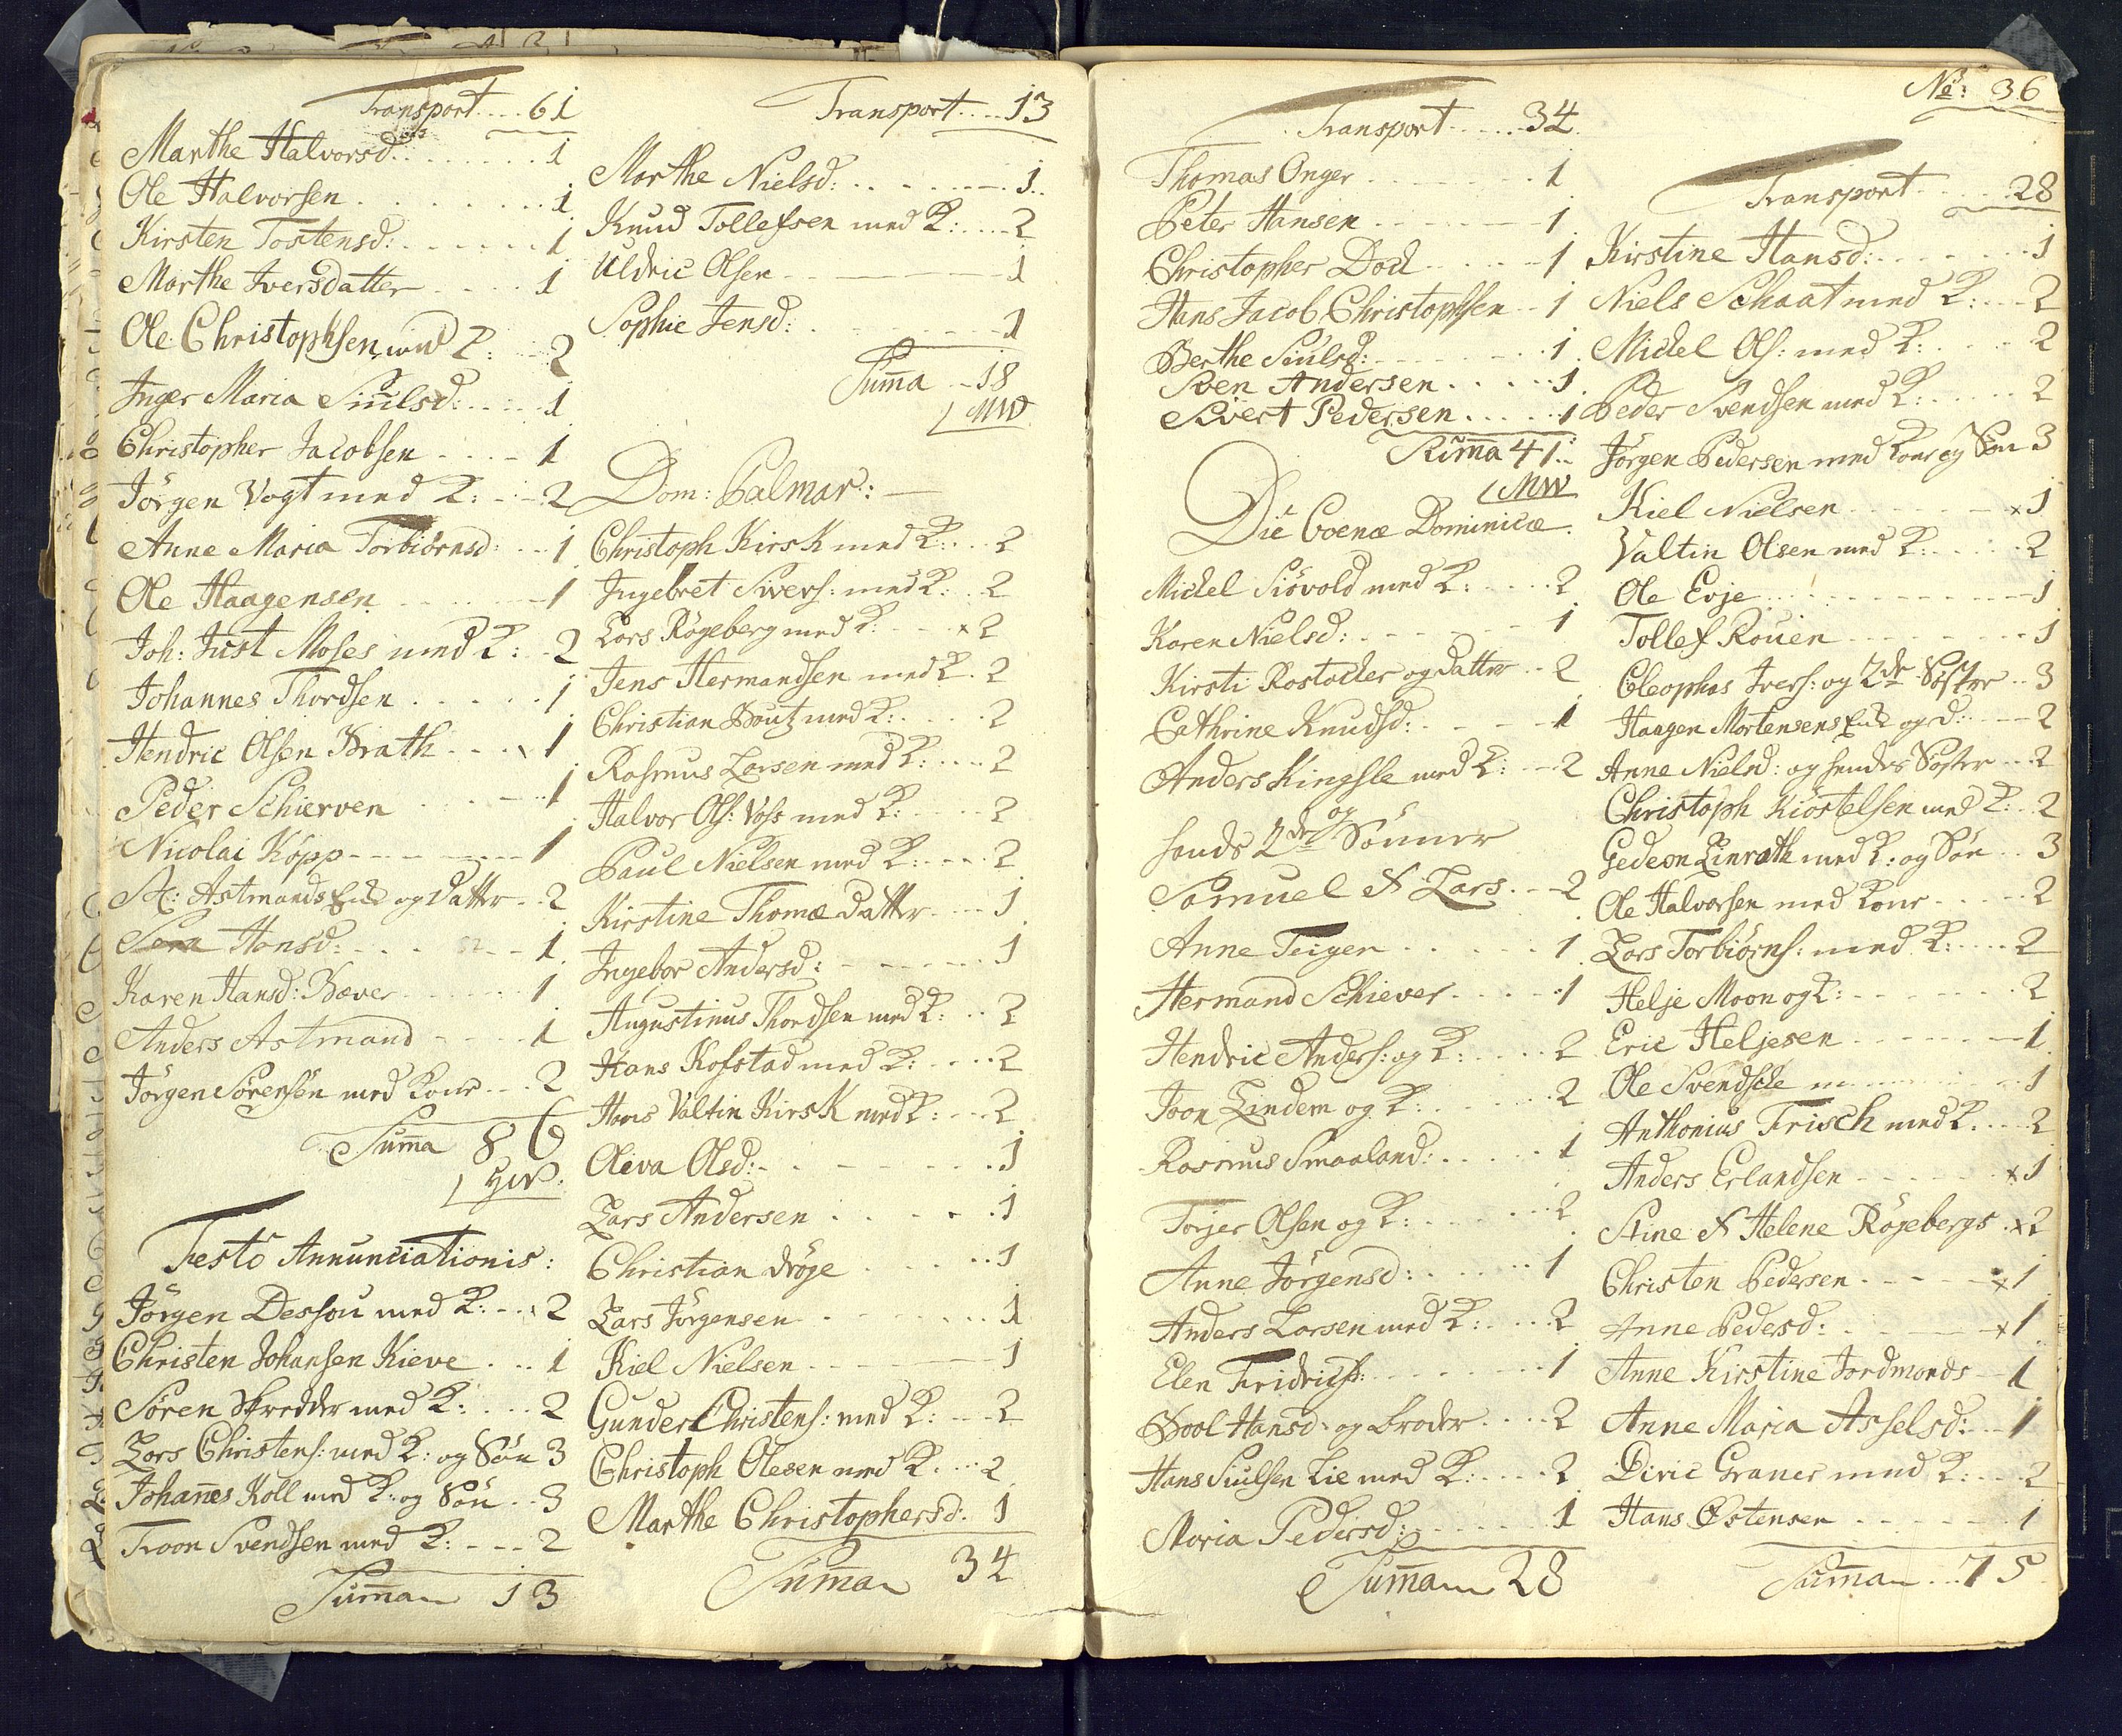 Transport....61
Marthe Halvorsd........1
Ole Halvorsen........1
Kirsten Tostensd:......1
Marthe Iversdatter....1
Ole Christophsen med K:..2
Inger Maria Siulsd:....1
Christopher Jacobsen....1
Jörgen Vogt med K:..2
Anne Maria Torbiörnsd:..1
Ole Haagensen......1
Joh: Just Moses med K:.2
Johannes Thordsen.....1
Hendric Olsen Brath....1
Peder Schierven.....1
Nicolai Köpp.......1
Astmands Enke og Datter..2
Hansd:......1
Karen Hansd: Bæver.....1
Anders Astmand....1
Jörgen Sörensen med Kone...2
Summa 86
Festo Annunciationis:
Jörgen Dessou med K:...2
Christen Johansen Kieve...1
Sören Skredder med K:...2
Lars Christens: med K: og Sön 3
Johannes Koll med K: og Sön..3
Troon Svendsen med K:...2
Summa 13
Transport....13
Marthe Nielsd:.......1
Knud Tollefsen med K:...2
Uldric Olsen.......1
Sophie Jensd:......1
Summa..18
MW
Dom: Palmar:
Christoph Kirsk med K:..2
Ingebret Sivers: med K:..2
Lars Rögeberg med K:...x2
Jens Hermandsen med K.2
Christian Boutz med K:....2
Rasmus Larsen med K:....2
Halvor Ols: Voss med K:....2
Paul Nielsen med K:....2
Kirstine Thomædatter....1
Ingebor Andersd:......1
Augustinus Thordsen med K:..2
Hans Kofstad med K:....2
Hans Valtin Kirsk med K:...2
Oleva Olsd:......1
Lars Andersen.....1
Christian Dröge.....1
Lars Jörgensen......1
Kiel Nielsen......1
Gunder Christens: med K:...2
Christoph Olesen med K....2
Marthe Christophersd:.1
Summa 34
Transport.....34
Thomas Onger......1
Peter Hansen......1
Christopher Död.....1
Hans Jacob Christophsen..1
Berthe Siulsd:......1
Sven Andersen.....1
Sivert Pedersen....1
Summa 41
MW
Die Coenæ Dominicæ.
Michel Siövold med K:....2
Karen Nielsd:......1
Kirsti Rostocker og datter..2
Cathrine Knudsd:....1
Anders Kingsle med K:..2
og
hands 2de Sönner
Samuel & Lars...2
Anne Teigen.....1
Hermand Schiever....1
Hendric Anders: og K:....2
Joon Lindem og K:.....2
Rasmus Smaaland:.....1
Torjer Olsen og K:.....2
Anne Jörgensd:.....1
Anders Larsen med K:...2
Elen Fridrichs:......1
Bool Hansd: og broder....2
Hans Siulsen Lie med K:....2
Maria Pedersd:......1
Summa 28
No: 36
Transport....28
Kirstine Hansd:......1
Niels Schaat med K:...2
Michel Ols: med K:....2
Peder Svendsen med K:.....2
Jörgen Pedersen med Kone og Sön 3
Kiel Nielsen......x1
Valtin Olsen med K:....2
Ole Evje.........1
Tollef Rouen......1
Cleophas Ivers: og 2de Söster..3
Haagen Mortensens Enke og d:...2
Anne Nielsd: og hendes Söster...2
Christoph Kiöstelsen med K:..2
Gedeon Linrath med K: og Sön..3
Ole Halvorsen med Kone.....2
Lars Torbiörns: med K:....2
Helje Moon og K:......2
Eric Heljesen......1
Ole Svendsen.....1
Anthonius Frisch med K....2
Anders Erlandsen......x1
Stine & Helene Rögebergs.x2
Christen Pedersen....x1
Anne Pedersd:.....x1
Anne Kirstine Jordmoods..1
Anne Maria Asselsd:..1
Diric Graner med K:...2
Hans Östensen......1
Summa...75